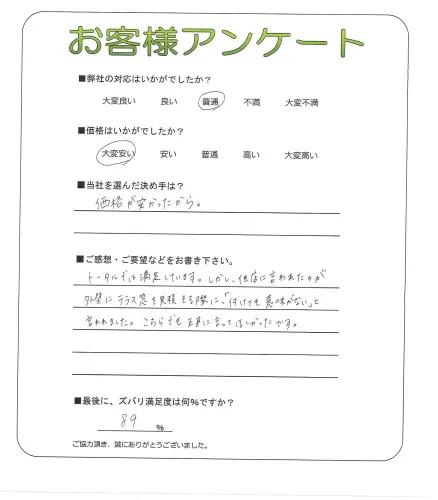 お客様アンケート
■弊社の対応はいかがでしたか？
大変良い 良い 普通 不満 大変不満
■価格はいかがでしたか？
大変安い 安い 普通 高い 大変高い
■当社を選んだ決め手は？
価格が安かったから。
■ご感想・ご要望などをお書き下さい。
トータルでは満足しています。しかし、他店に言われたのが
外壁にテラス窓を見積もる際に、「付けても意味がない」と
言われました。こちらでも正直に言ってほしかったです。
■最後に、ズバリ満足度は何%ですか？
89 %
ご協力頂き、誠にありがとうございました。